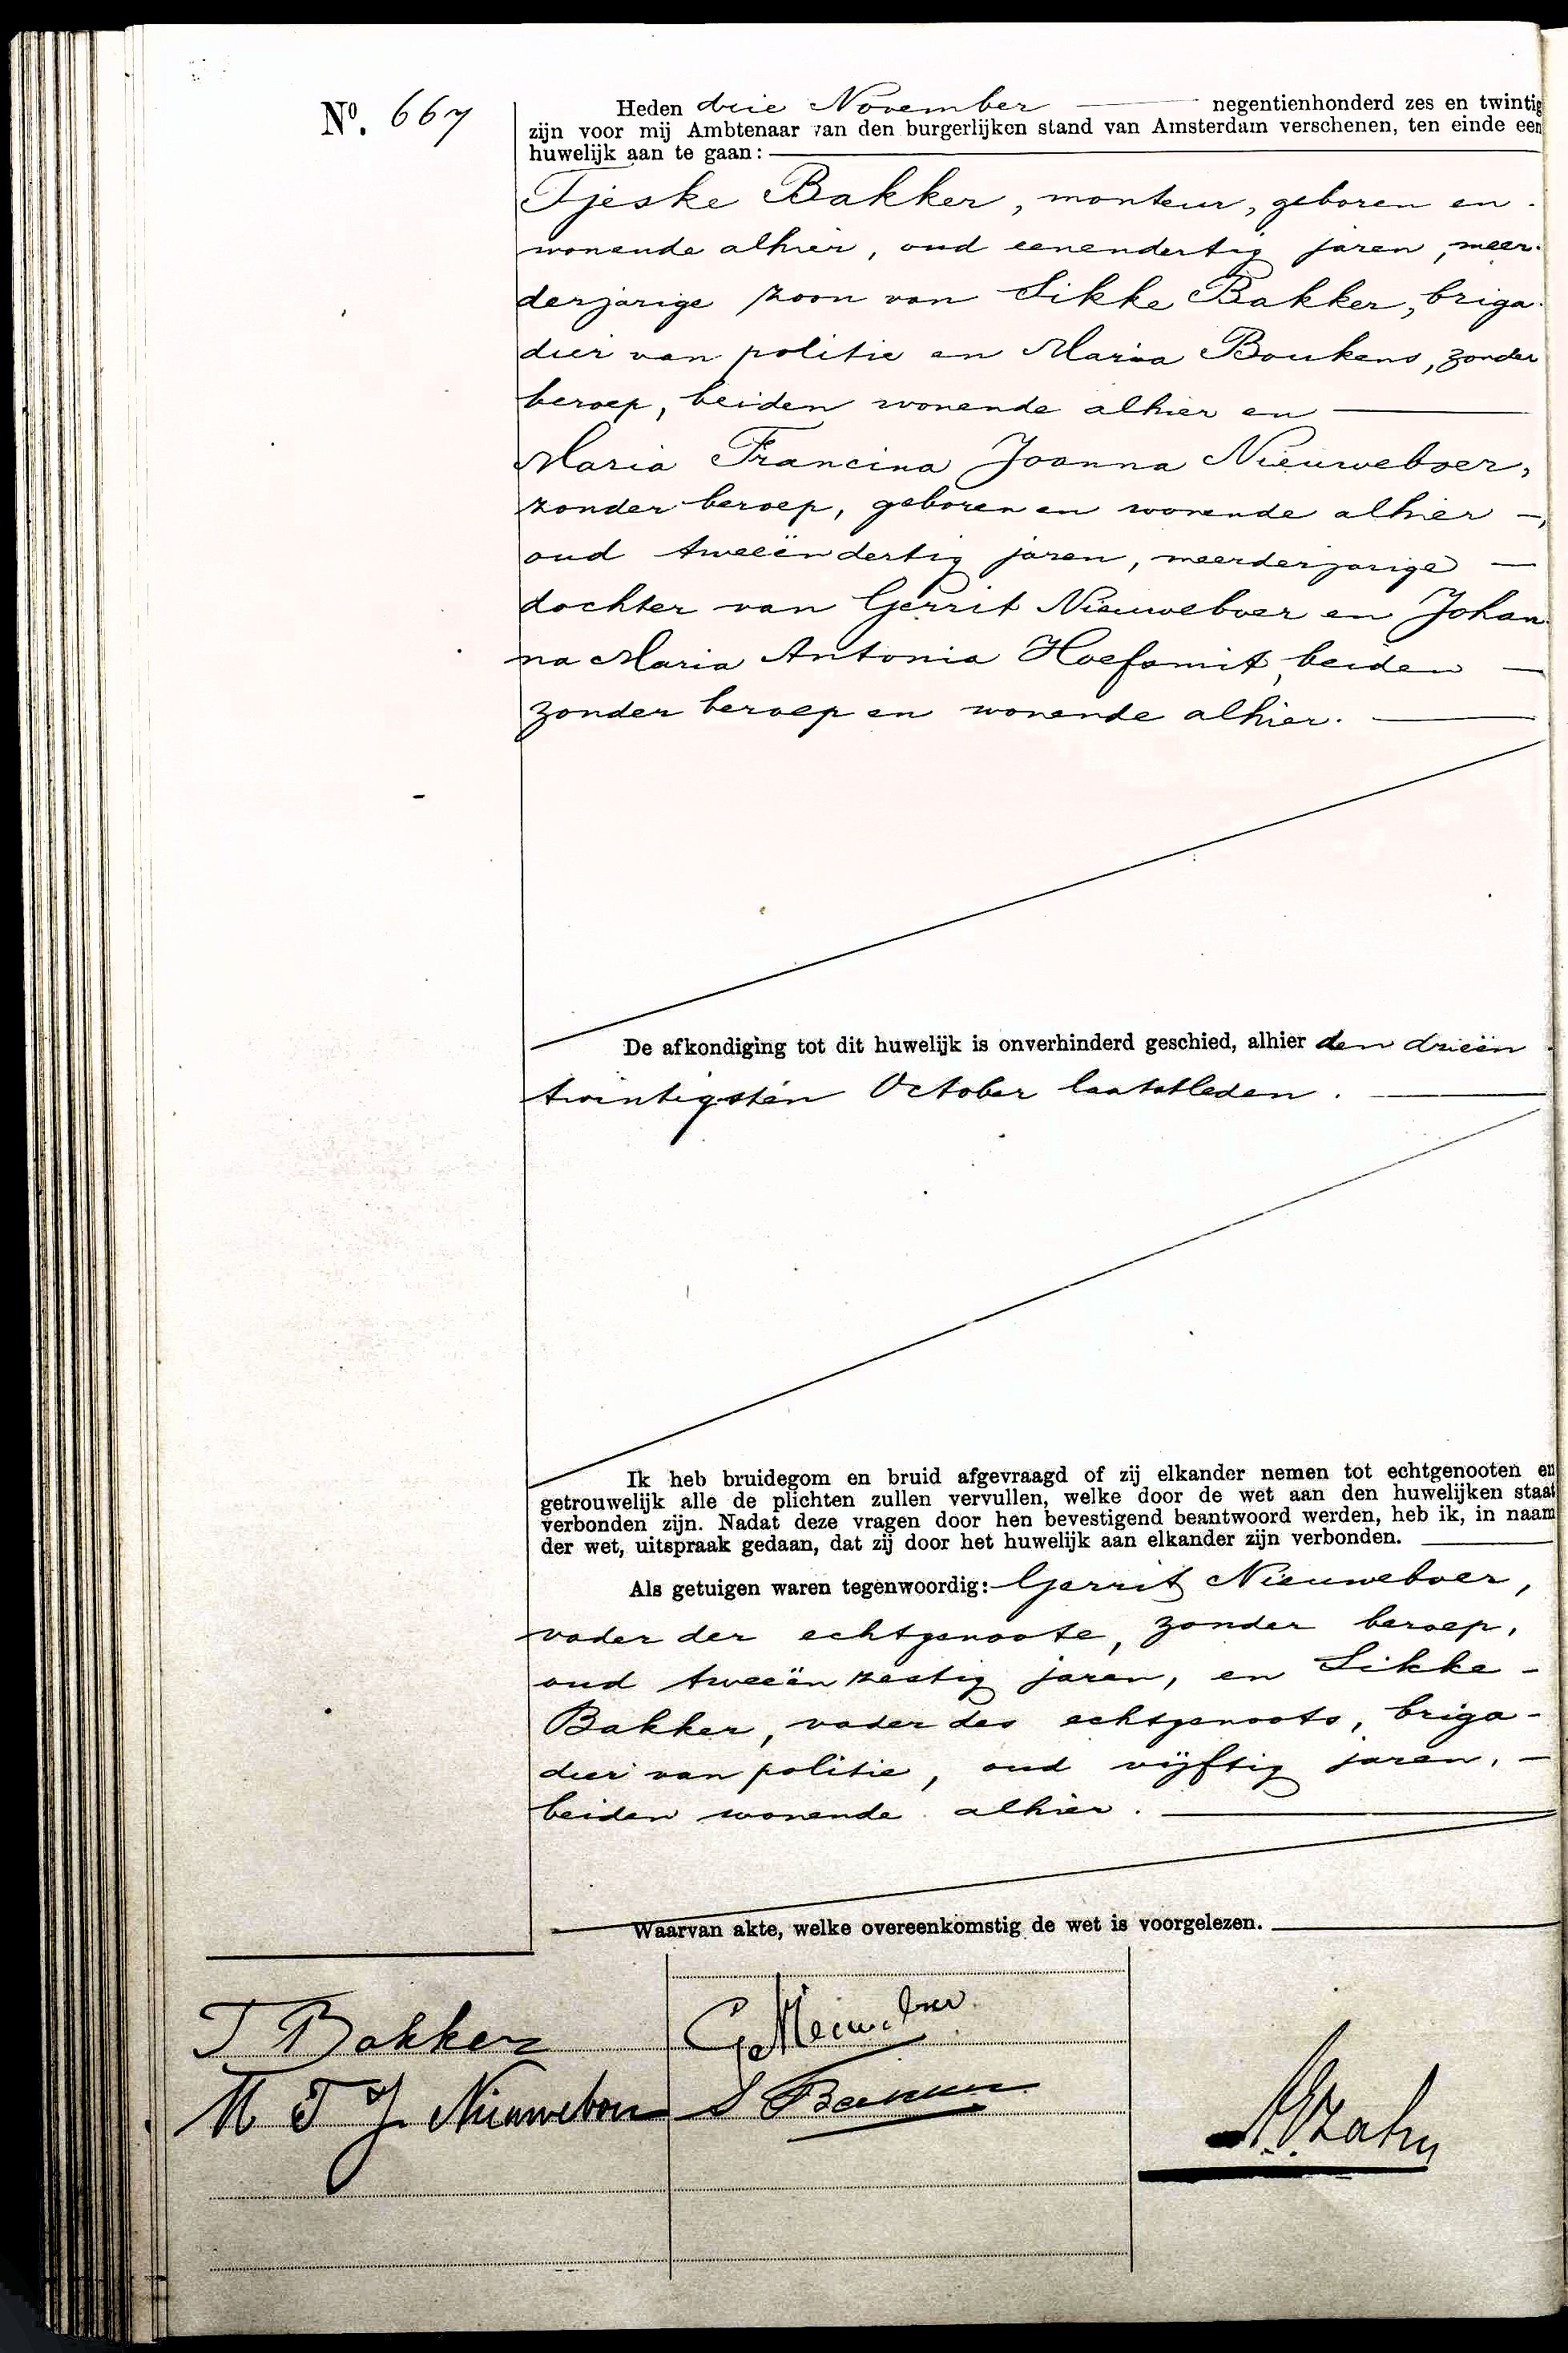 Nº. 667
Heden drie November — negentienhonderd zes en twintig
zijn voor mij Ambtenaar van den burgerlijken stand van Amsterdam verschenen, ten einde een
huwelijk aan te gaan: —
Tjeske Bakker, monteur, geboren en
wonende alhier, oud eenendertig jaren, meer-
derjarige zoon van Sikke Bakker, briga-
dier van politie en Maria Boukens, zonder
beroep, beiden wonende alhier en —
Maria Francina Joanna Nieuweboer,
zonder beroep, geboren en wonende alhier —,
oud tweeëndertig jaren, meerderjarige —
dochter van Gerrit Nieuweboer en Johan-
na Maria Antonia Hoefsmit, beiden —
zonder beroep en wonende alhier. —
De afkondiging tot dit huwelijk is onverhinderd geschied, alhier den drieën
twintigsten October laatstleden. —
Ik heb bruidegom en bruid afgevraagd of zij elkander nemen tot echtgenooten en
getrouwelijk alle de plichten zullen vervullen, welke door de wet aan den huwelijken staat
verbonden zijn. Nadat deze vragen door hen bevestigend beantwoord werden, heb ik, in naam
der wet, uitspraak gedaan, dat zij door het huwelijk aan elkander zijn verbonden. —
Als getuigen waren tegenwoordig: Gerrit Nieuweboer,
vader der echtgenoote, zonder beroep,
oud tweeënzestig jaren, en Sikke -
Bakker, vader des echtgenoots, briga-
dier van politie, oud vijftig jaren, -
beiden wonende alhier. —
Waarvan akte, welke overeenkomstig de wet is voorgelezen. —
T Bakker
G Nieuweboer
M F J Nieuweboer
S Bakker
Zahn